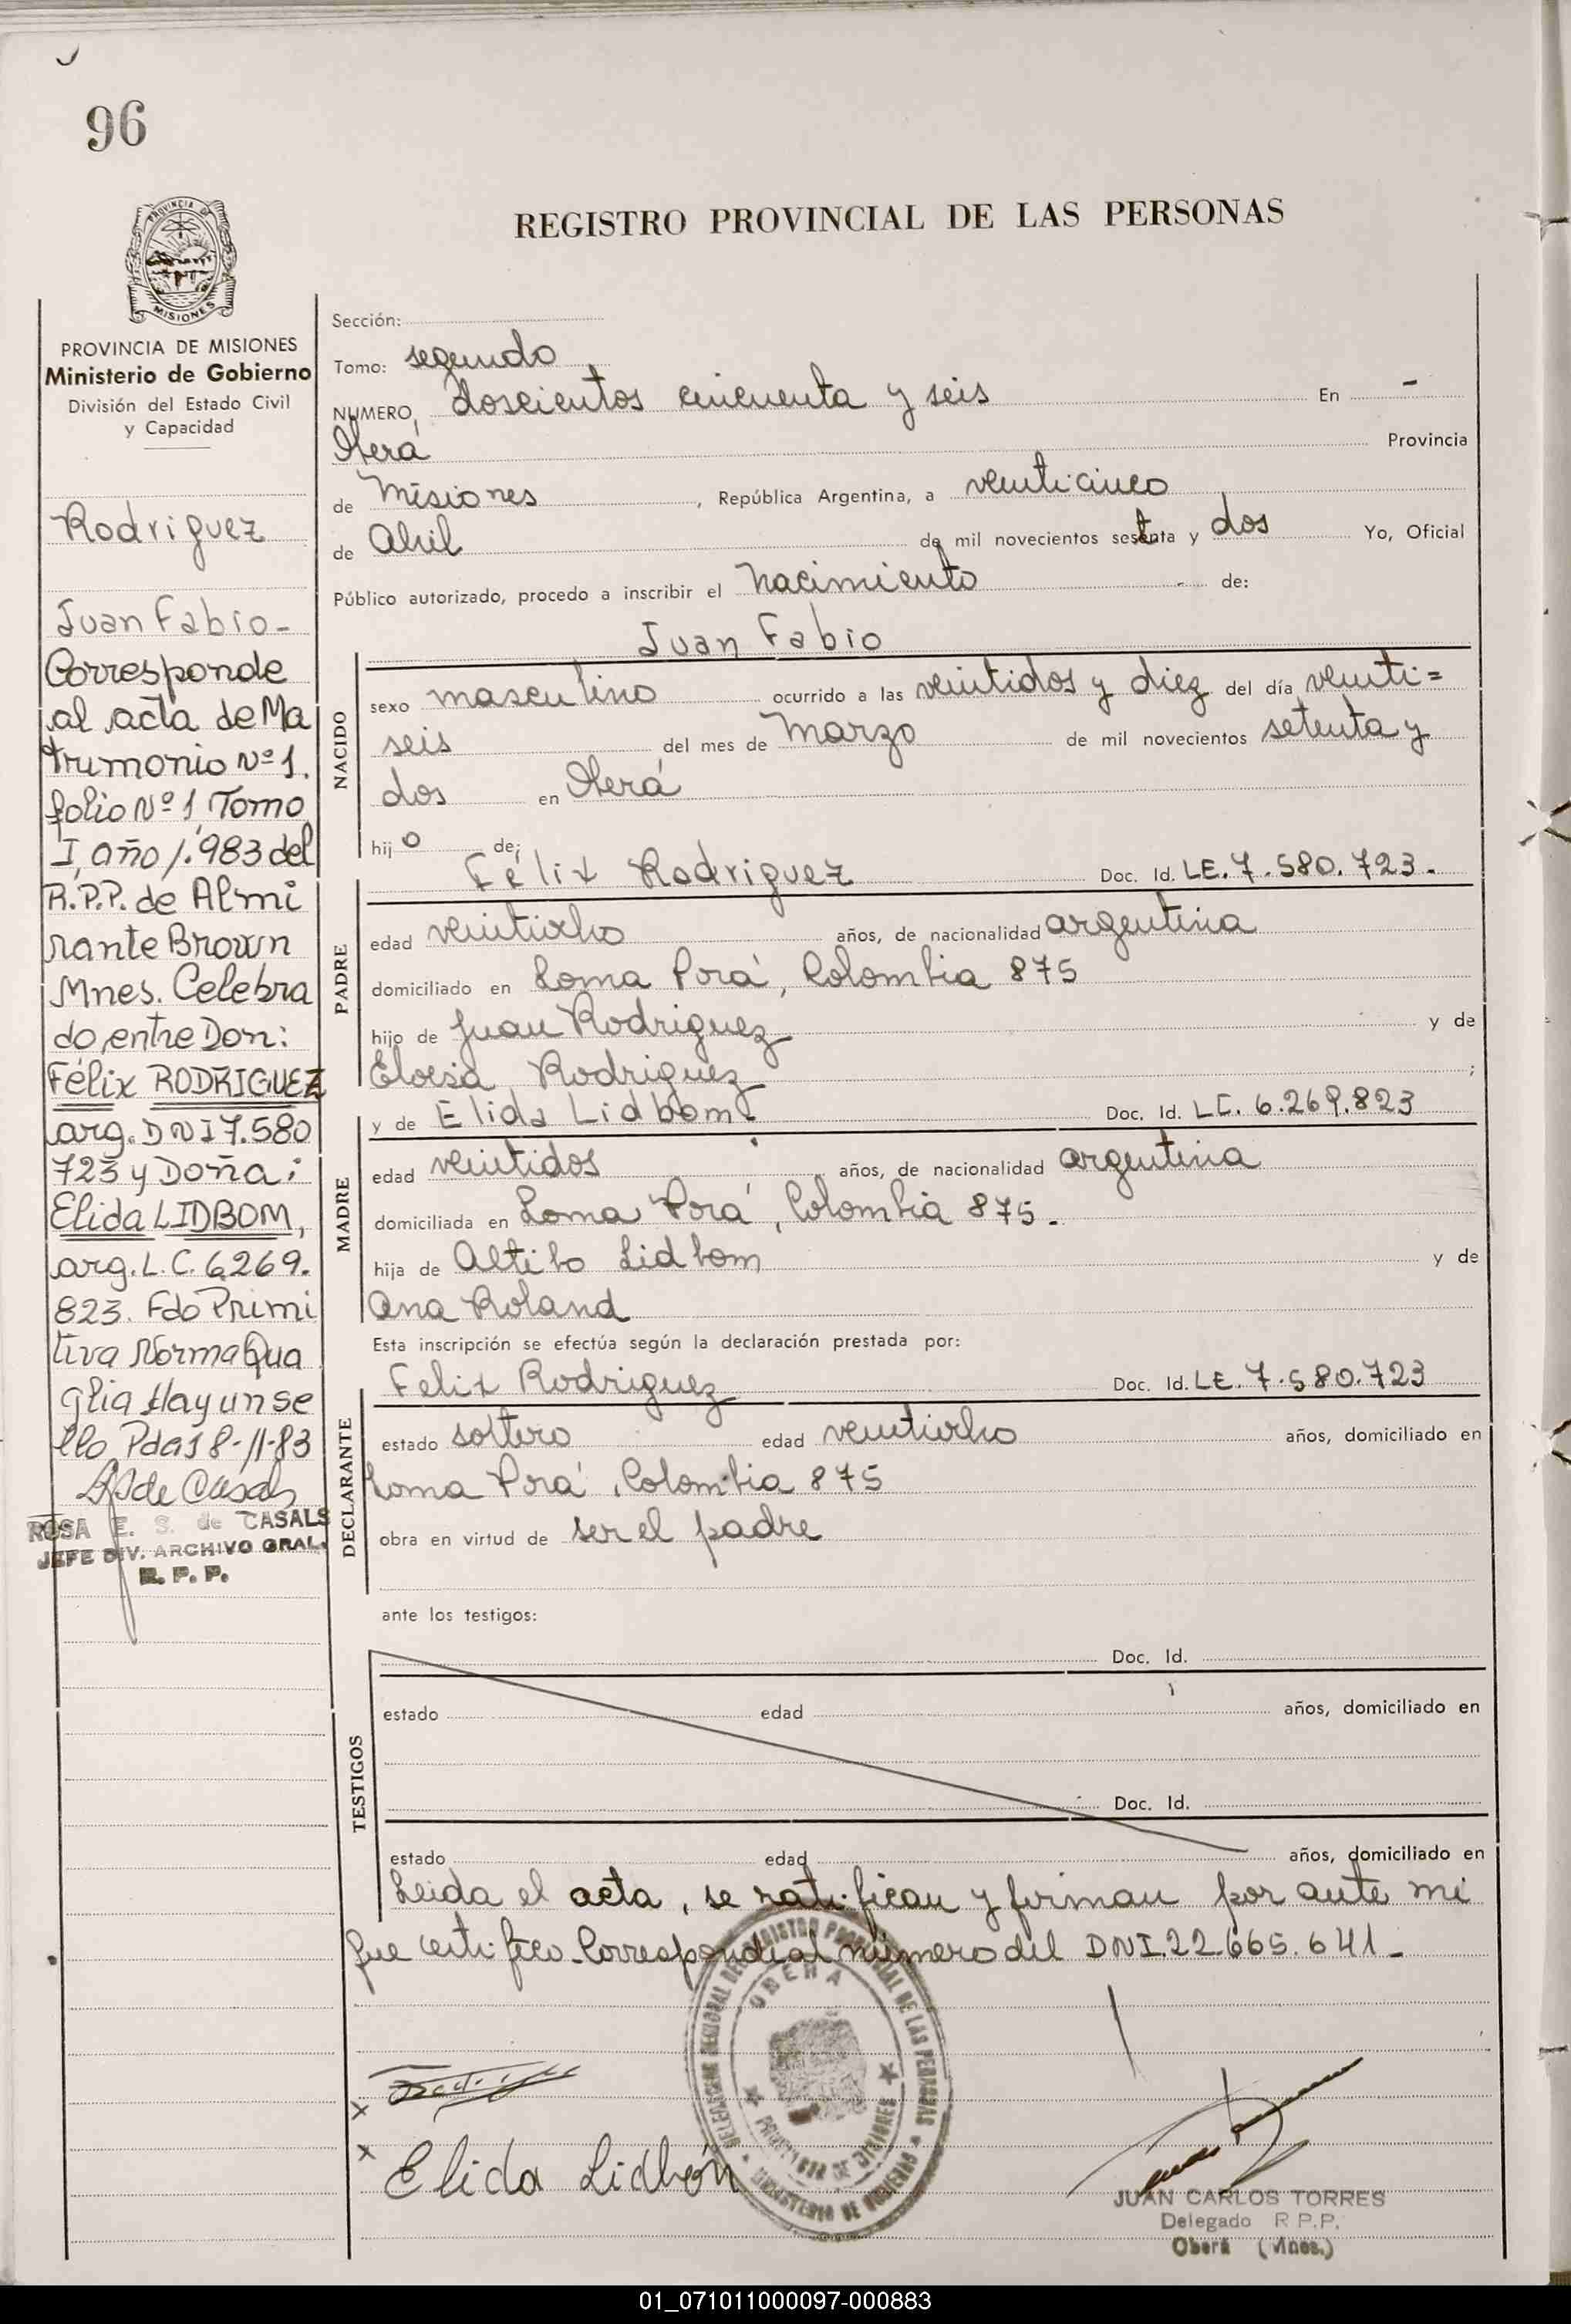 96
PROVINCIA DE
MISIONES
PROVINCIA DE MISIONES
Ministerio de Gobierno
División del Estado Civil
y Capacidad
Rodriguez
Juan Fabio-
Corresponde
al acta de Ma
trimonio Nº 1.
folio Nº 1, Tomo
I, año 1.983 del
R.P.P. de Almi
rante Brown
Mnes. Celebra
do, entre Don:
Félix RODRIGUEZ
arg. DNI 7.580
723 y Doña:
Elida LIDBOM,
arg. L.C. 6269.
823. Fdo Primi
tiva Norma Qua
glia Hay un se
llo Pdas 8-11-83
de Casals
ROSA E. S. de CASALS
JEFE DIV. ARCHIVO GRAL.
R. P. P.
REGISTRO PROVINCIAL DE LAS PERSONAS
Sección:
Tomo: segundo
NUMERO, doscientos cincuenta y seis En -
Oberá Provincia
de Misiones, República Argentina, a veinticinco
de Abril de mil novecientos setenta y dos Yo, Oficial
Público autorizado, procedo a inscribir el nacimiento de:
Juan Fabio
NACIDO
sexo masculino ocurrido a las veintidos y diez del día veinti=
seis del mes de Marzo de mil novecientos setenta y
dos en Oberá
hijo de;
Félix Rodriguez Doc. Id. LE. 7.580.723.
PADRE
edad veintiocho años, de nacionalidad argentina
domiciliado en Loma Porá, Colombia 875
hijo de Juan Rodriguez y de
Eloisa Rodriguez ;
y de Elida Lidbom. Doc. Id. LC. 6.269.823
MADRE
edad veintidos años, de nacionalidad argentina
domiciliada en Loma Porá, Colombia 875.
hija de Altibo Lidbom y de
Ana Roland
Esta inscripción se efectúa según la declaración prestada por:
Felix Rodriguez Doc. Id. LE. 7.580.723
DECLARANTE
estado soltero edad veintiocho años, domiciliado en
Loma Porá, Colombia 875
obra en virtud de ser el padre
ante los testigos:
Doc. Id.
TESTIGOS
estado edad años, domiciliado en
Doc. Id.
estado edad años, domiciliado en
Leida el acta, se ratifican y firman por ante mi
que certifico. Corresponde al número del DNI. 22.665.641-
DELEGACION REGIONAL DEL REGISTRO PROVINCIAL DE LAS PERSONAS
OBERA
PROVINCIA DE MISIONES
MINISTERIO DE GOBIERNO
x
x Elida Lidbón
JUAN CARLOS TORRES
Delegado R.P.P.
Oberá (Mnes.)
01_071011000097-000883